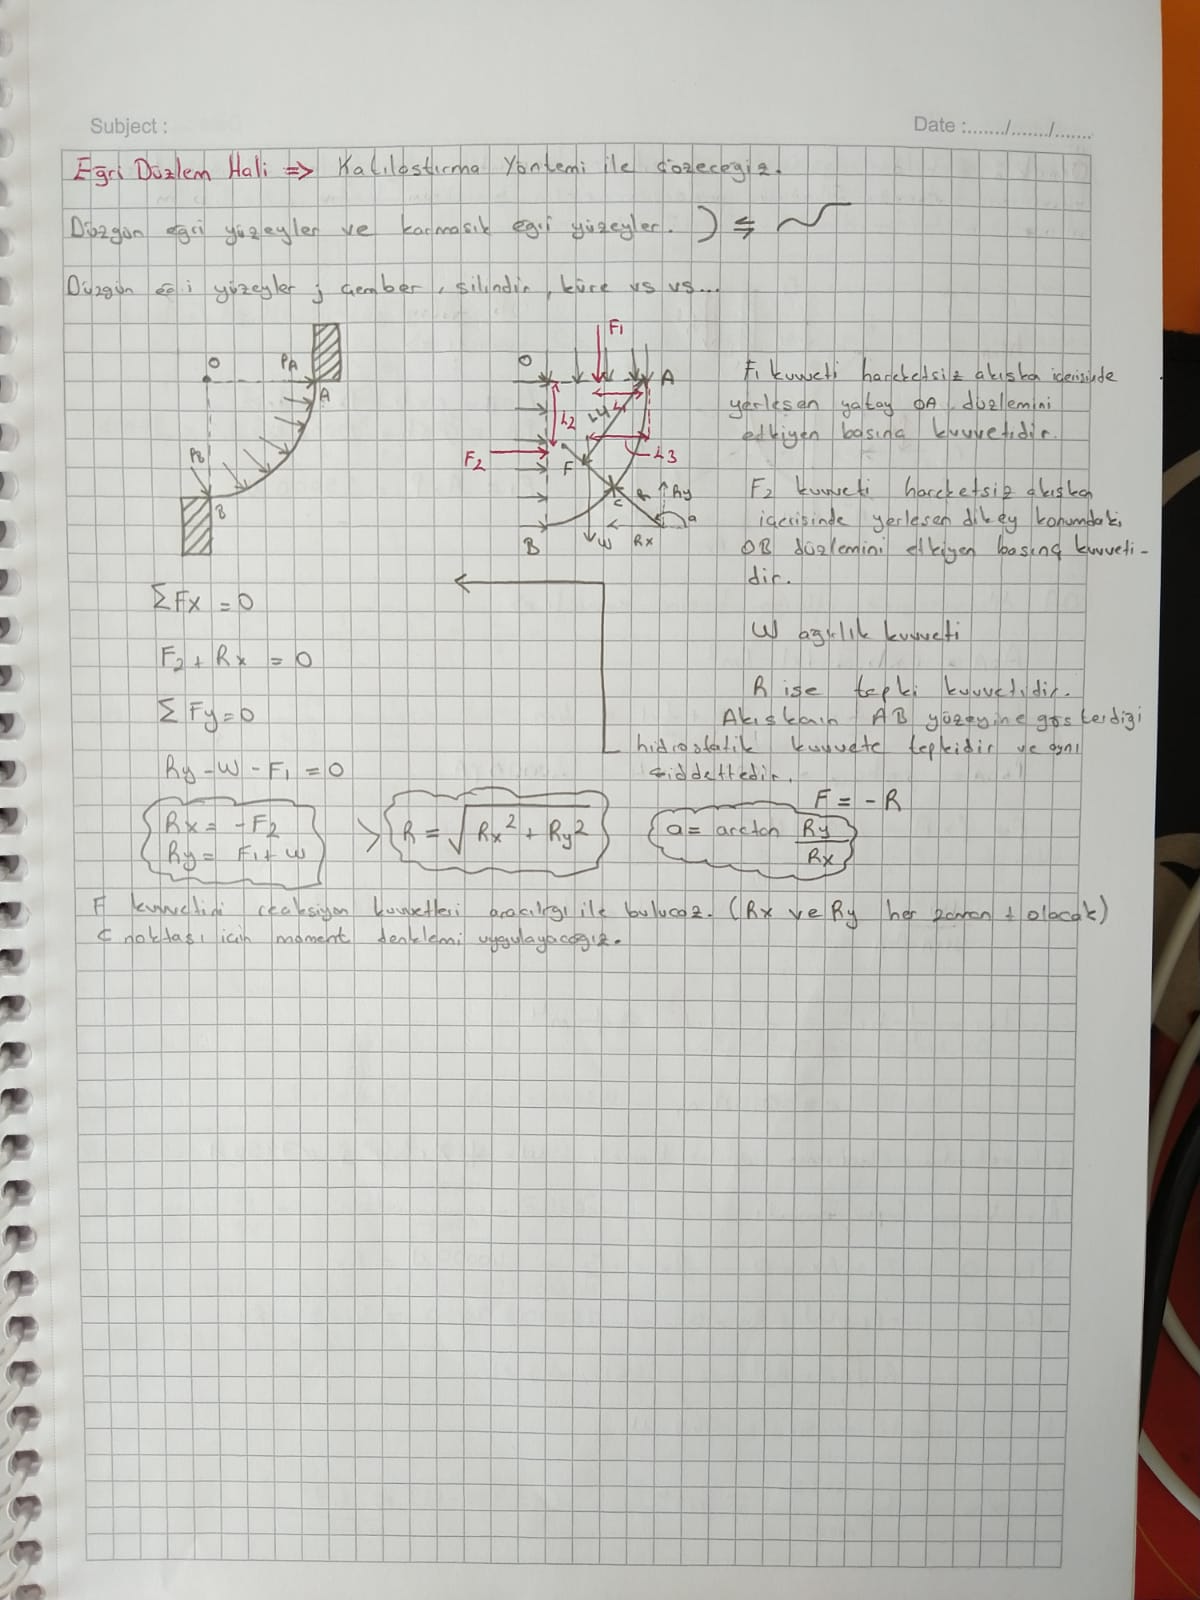 Subject :
Date :......./......./.......
Eğri Düzlem Hali => Katılaştırma Yöntemi ile çözeceğiz.
Düzgün eğri yüzeyler ve karmaşık eğri yüzeyler.
Düzgün eğri yüzeyler ; Çember, silindir, küre vs vs...
O
PA
A
PB
B
F1
O
A
L2
L4
F2
F
L3
C
R
Ry
a
B
W
Rx
F1 kuvveti hareketsiz akışka içerisinde
yerleşen yatay OA düzlemini
etkiyen basınç kuvvetidir.
F2 kuvveti hareketsiz akışkan
içerisinde yerleşen dikey konumdaki
OB düzlemini etkiyen basınç kuvveti-
dir.
W ağırlık kuvveti
R ise tepki kuvvetidir.
Akışkanın AB yüzeyine gösterdiği
hidrostatik kuvvete tepkidir ve aynı
şiddettedir.
F = -R
ΣFx = 0
F2 + Rx = 0
ΣFy = 0
Ry - W - F1 = 0
Rx = -F2
Ry = F1 + W
R = √Rx² + Ry²
a = arctan Ry/Rx
F kuvvetini reaksiyon kuvvetleri aracılığı ile bulucaz. (Rx ve Ry her zaman + olacak)
C noktası için moment denklemi uygulayacağız.